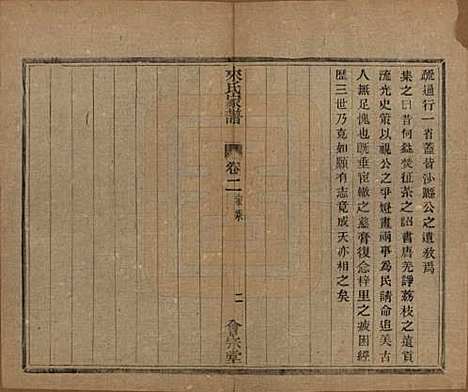 疏通行一省蓋昔沙縣公之遺教焉
集之曰昔何益焚征茶之詔書唐羌諍荔枝之遠貢
流光史策以視公之爭婚畫兩事為民請命追美古
人無足愧也既垂宦轍之慈膏復念梓里之疲困經
歷三世乃克如願有志竟成天亦相之矣
來氏家譜
卷二
家乘
二
會宗堂